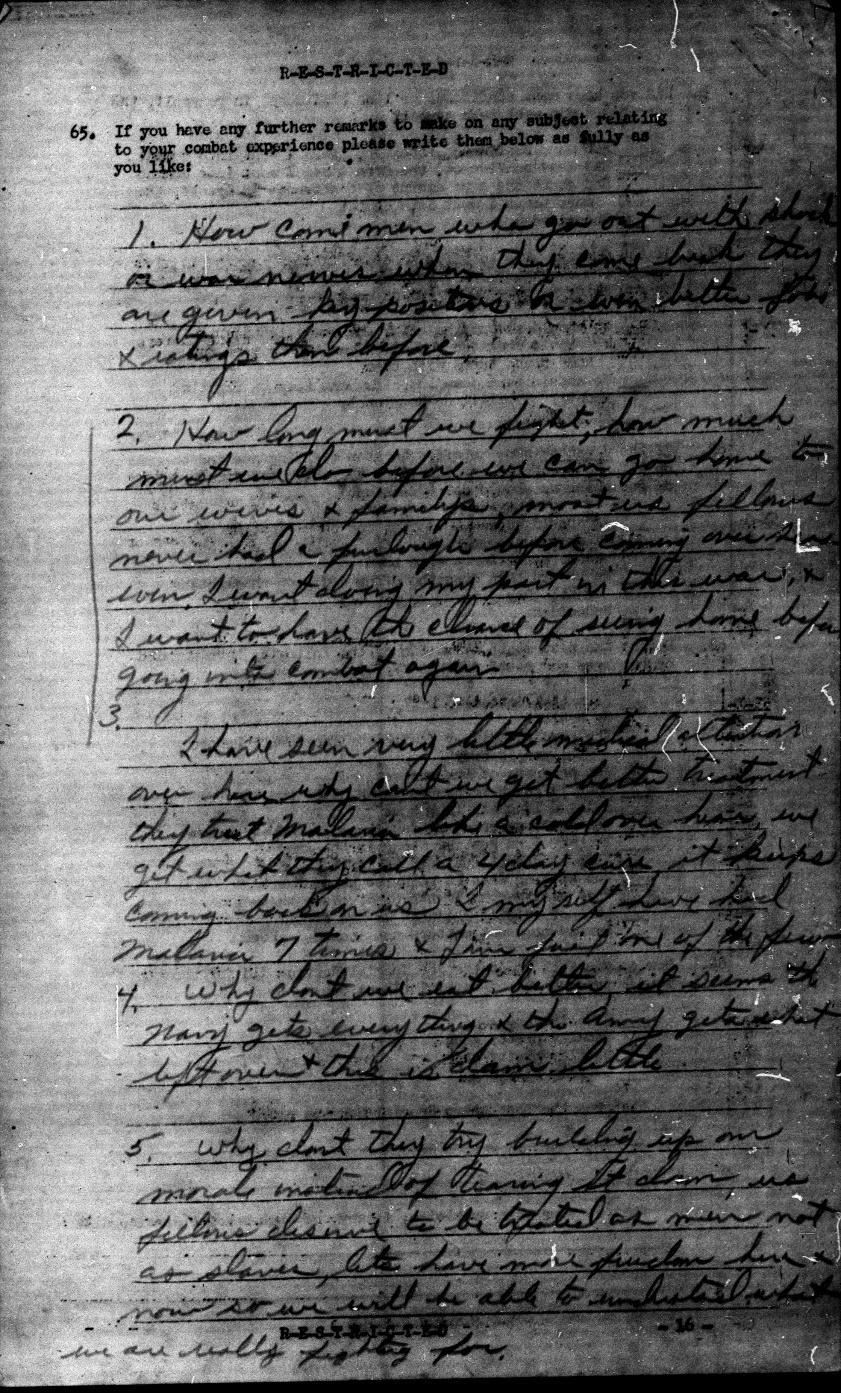 R-E-S-T-R-I-C-T-E-D
65. If you have any further remarks to make on any subject relating
to your combat experience please write them below as fully as
you like:
1. How come men who go out with shock
or war nerves when they come back they
are given key positions or even better jobs
& ratings then before
2. How long must we fight, how much
must we do before we can go home to
our wives & familys, most us fellows
never had a furlough before coming over
even. I want doing my part in this war, &
I want to have the chance of seeing home before
going into combat again
3.
I have seen very little medical attention
over here why cant we get better treatment
they treat Malaria like a cold over hear, we
get what they call a 4 day cure it keeps
coming back on us I myself have had
Malaria 7 times & I'm just one of the few
4. Why dont we eat better, it seems the
Navy gets everything & the Army gets what
left over & this is damn little
5. Why dont they try building up our
morale instead of tearing it down, us
fellows deserve to be treated as men not
as slaves, lets have more freedom here &
now so we will be able to understand what
R-E-S-T-R-I-C-T-E-D - 16 -
we are really fighting for.